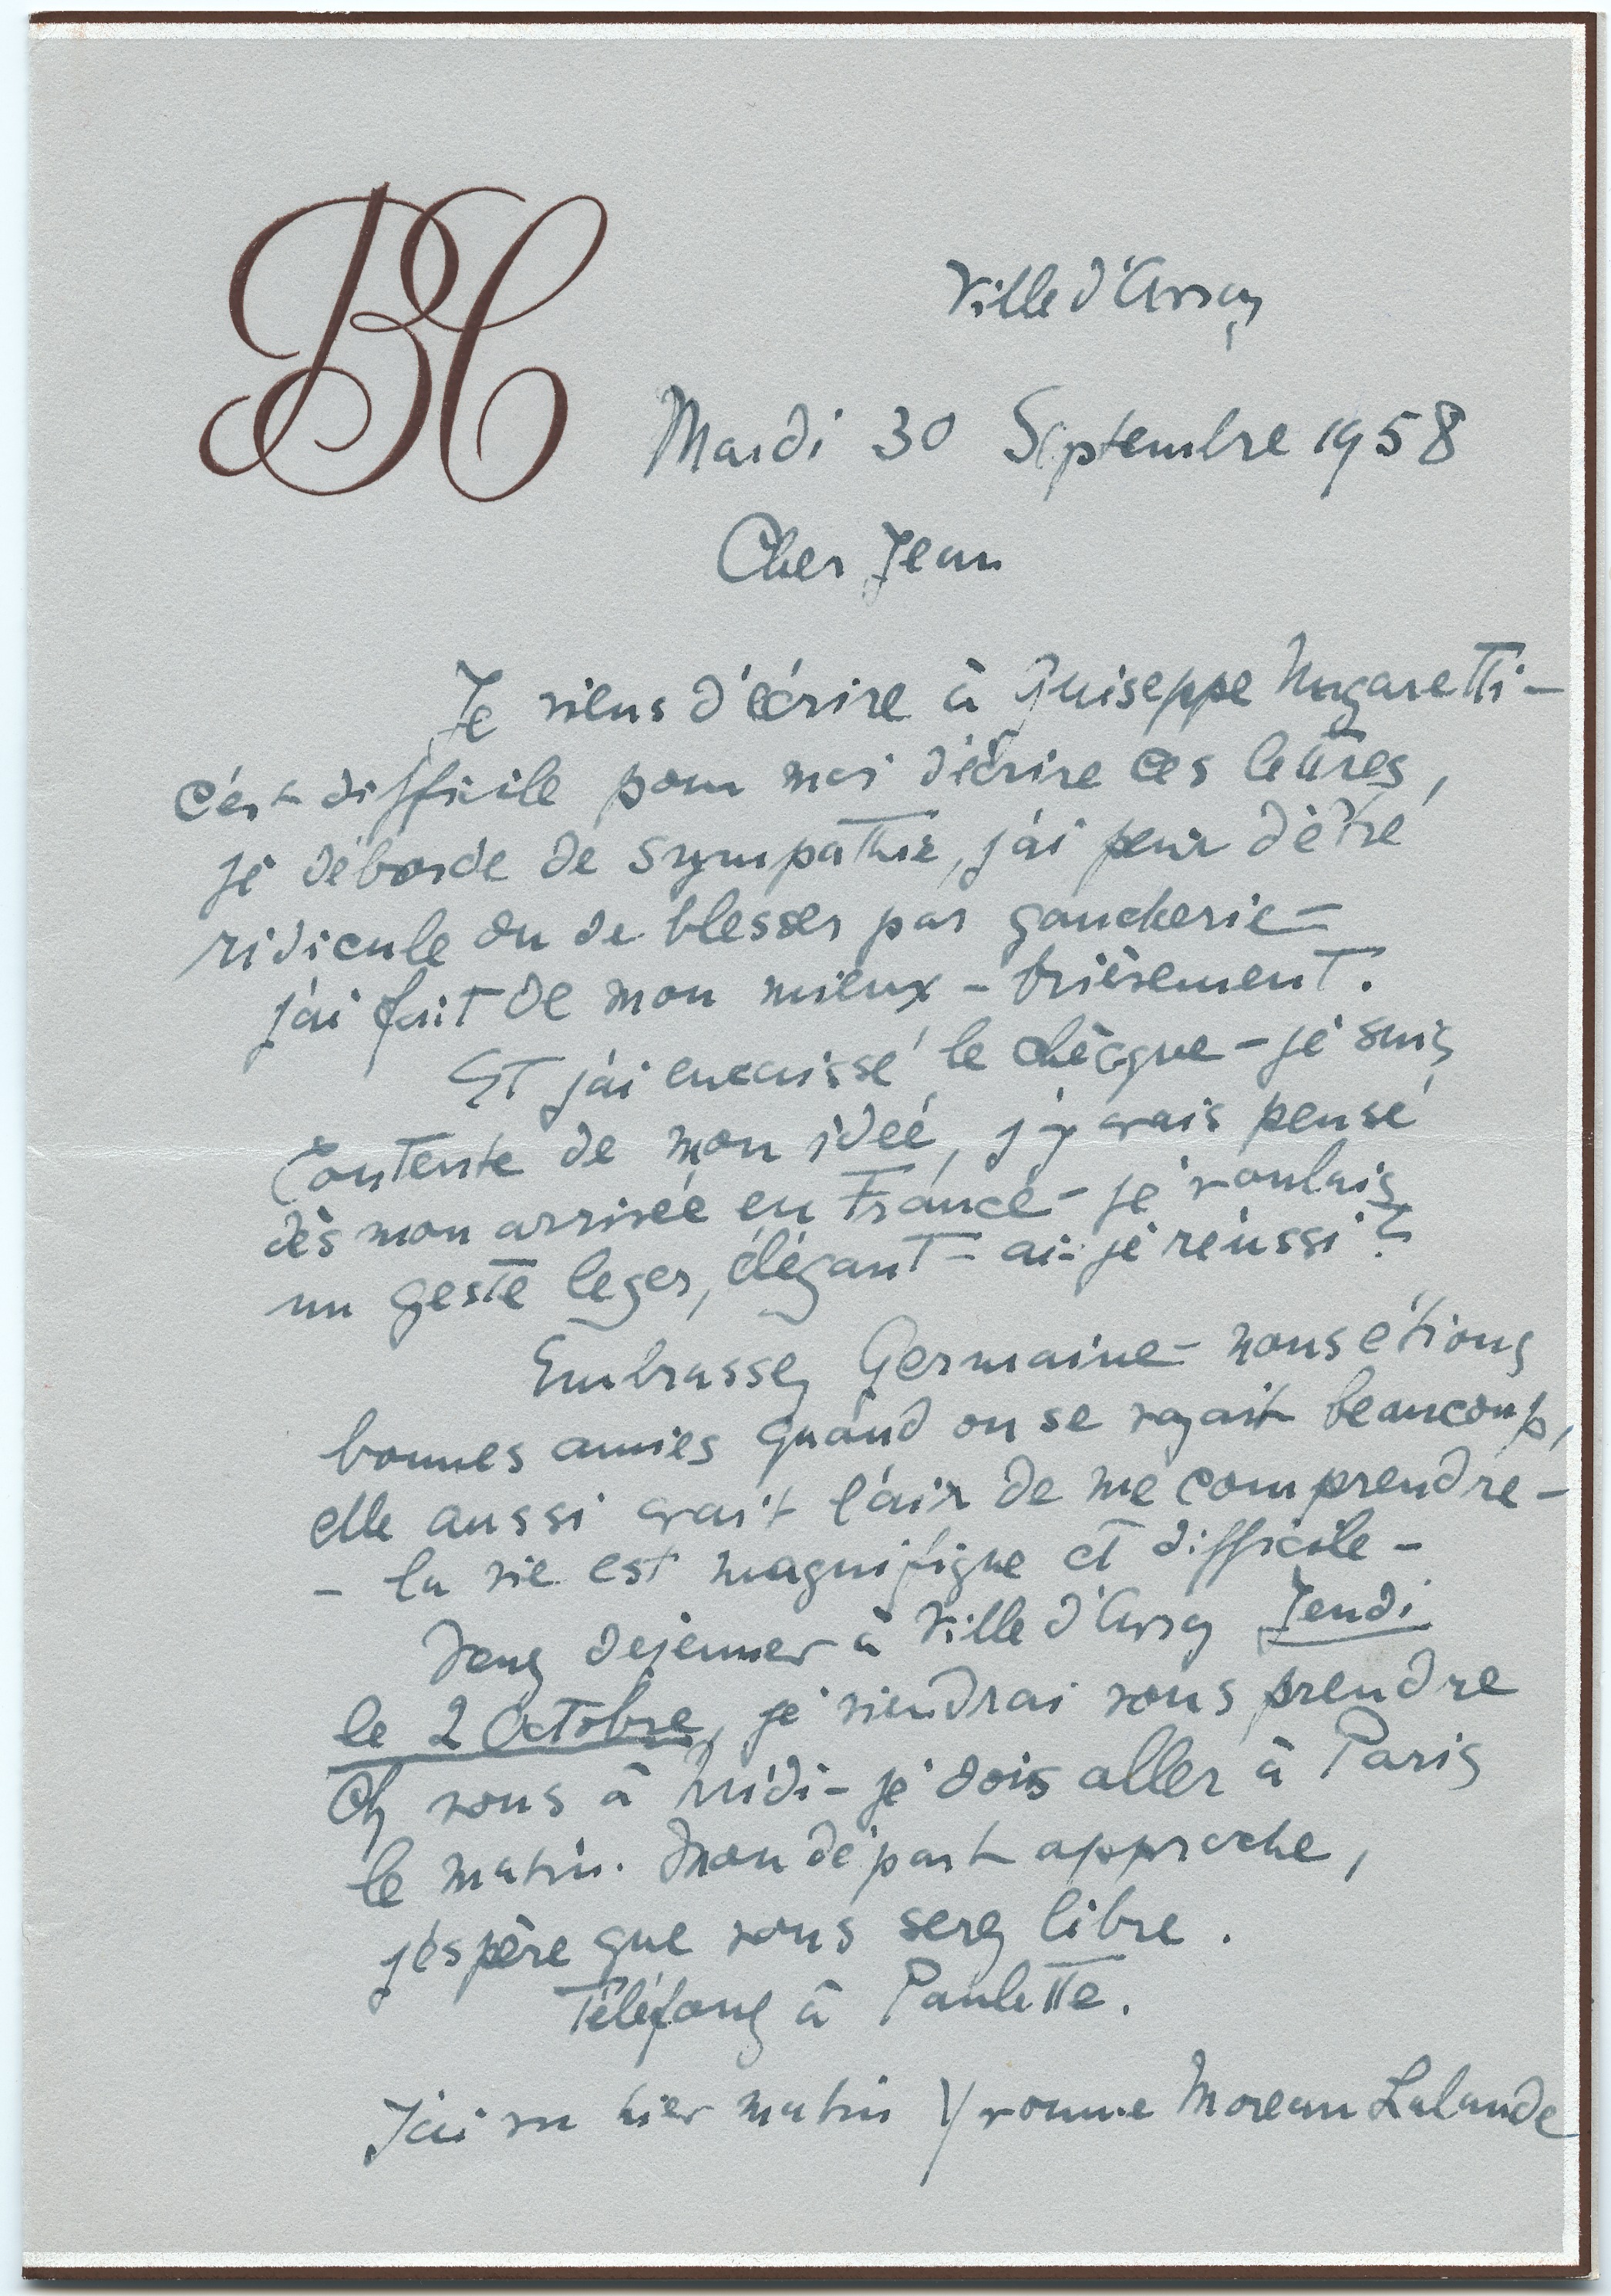 BC
Ville d'Avray
Mardi 30 Septembre 1958
Cher Jean
Je viens d'écrire à Guiseppe Mugaretti –
c'est difficile pour moi d'écrire ces lettres,
je déborde de sympathie, j'ai peur d'être
ridicule ou de blesser par gaucherie –
j'ai fait de mon mieux – brièvement.
Et j'ai encaissé le chèque – je suis
contente de mon idée, j'y avais pensé
dès mon arrivée en France – je voulais
un geste leger, élégant – ai-je réussi ?
Embrassez Germaine – nous étions
bonnes amies quand on se voyait beaucoup,
elle aussi avait l'air de me comprendre –
– la vie est magnifique et difficile –
dejeuner à Ville d'Avray Jeudi
le 2 Octobre, je viendrai vous prendre
ch vous à Midi – je dois aller à Paris
le matin. Mon départ approche,
j'éspère que vous serez libre.
Téléfonez à Paulette.
J'ai vu hier matin Yvonne Moreau Lalande